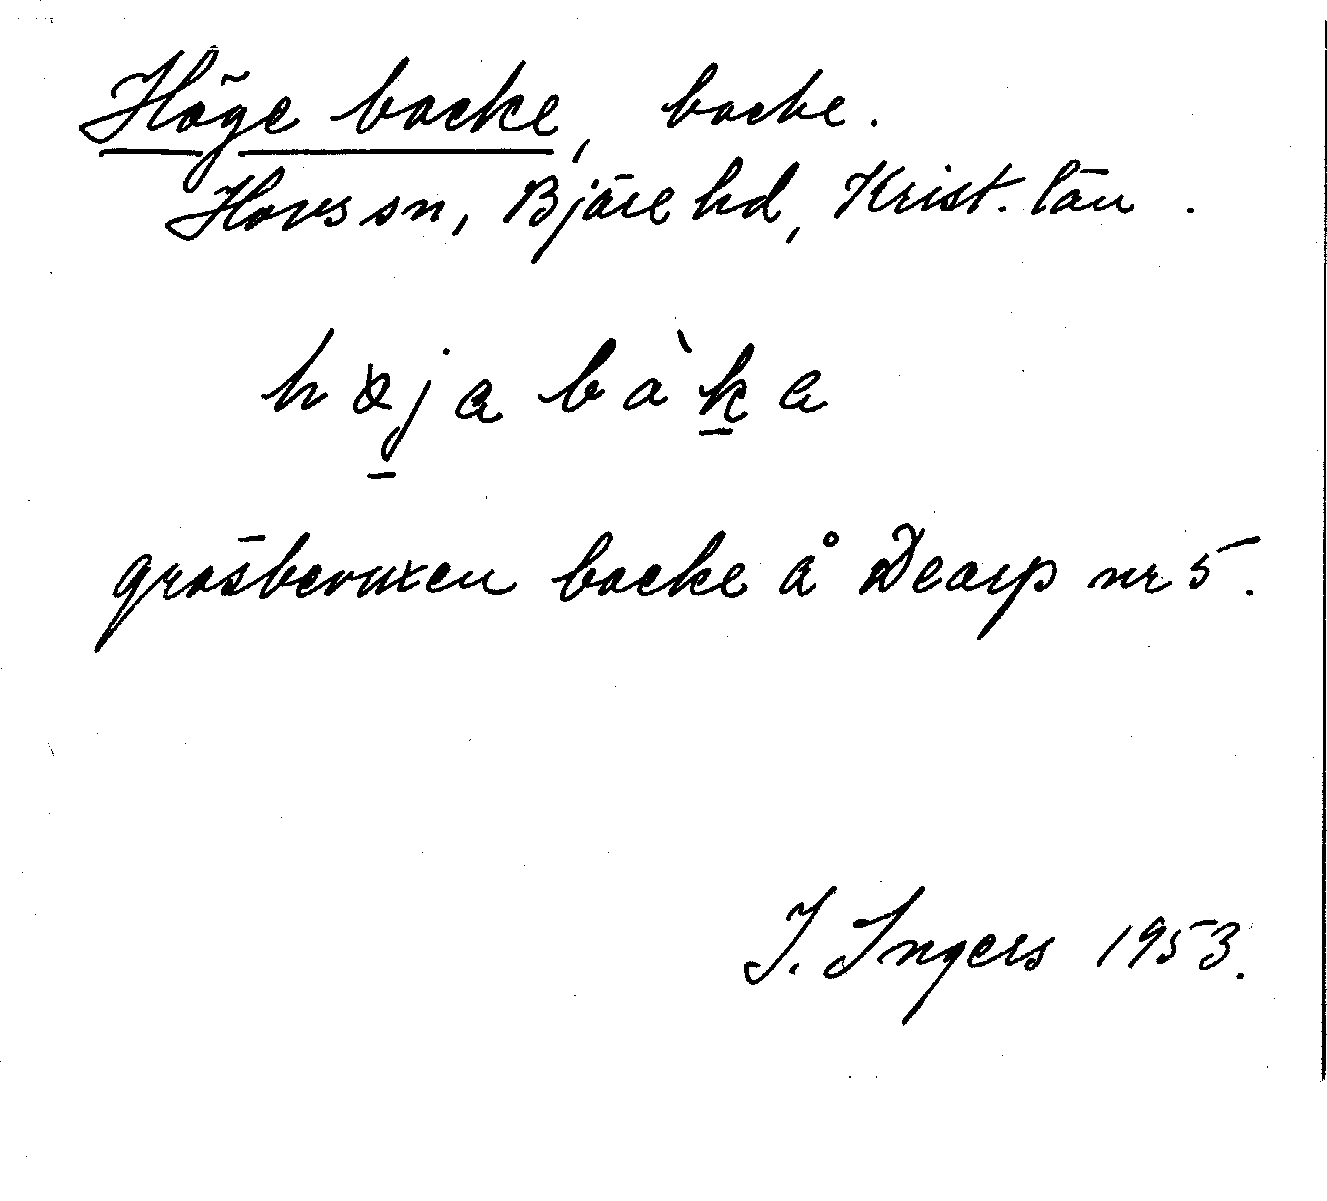 Höge backe, backe.
Hovs sn, Bjäre hd, Krist. län.
gräsbevuxen backe å Dearp nr 5.
I. Ingers 1953.